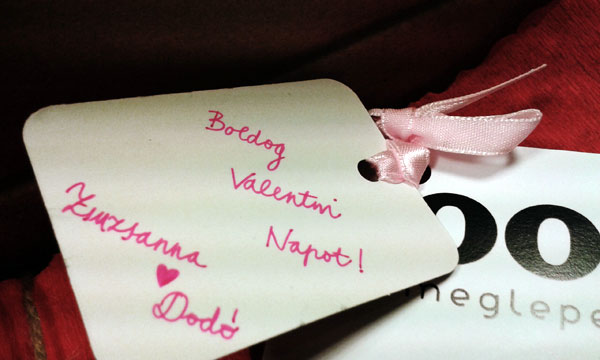 Boldog
Valentin
Napot!
Zsuzsanna
♥
Dodó
OO
meglepe